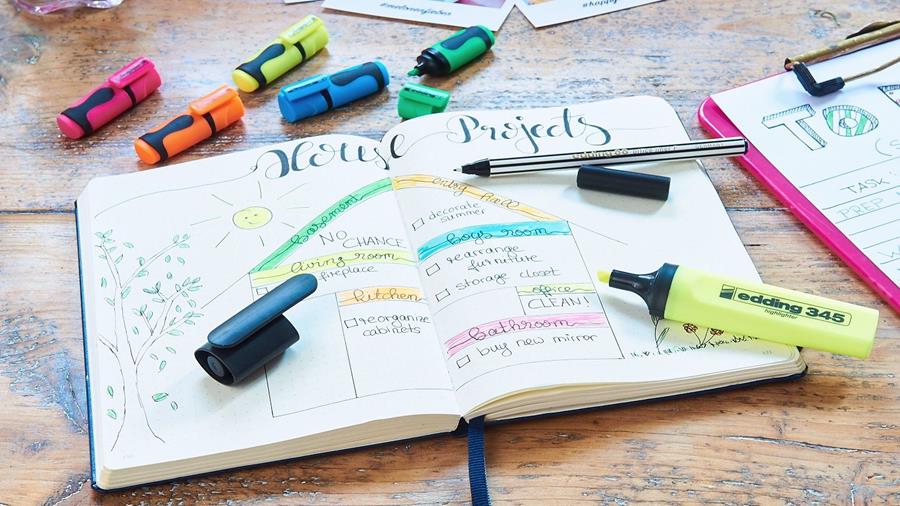 House Projects
basement
NO CHANCE
living room
fireplace
kitchen
reorganize
cabinets
entry hall
decorate
summer
boys room
rearrange
furniture
storage closet
office
CLEAN!
bathroom
buy new mirror
edding 345
highlighter
TO
TASK
PREP
#happy